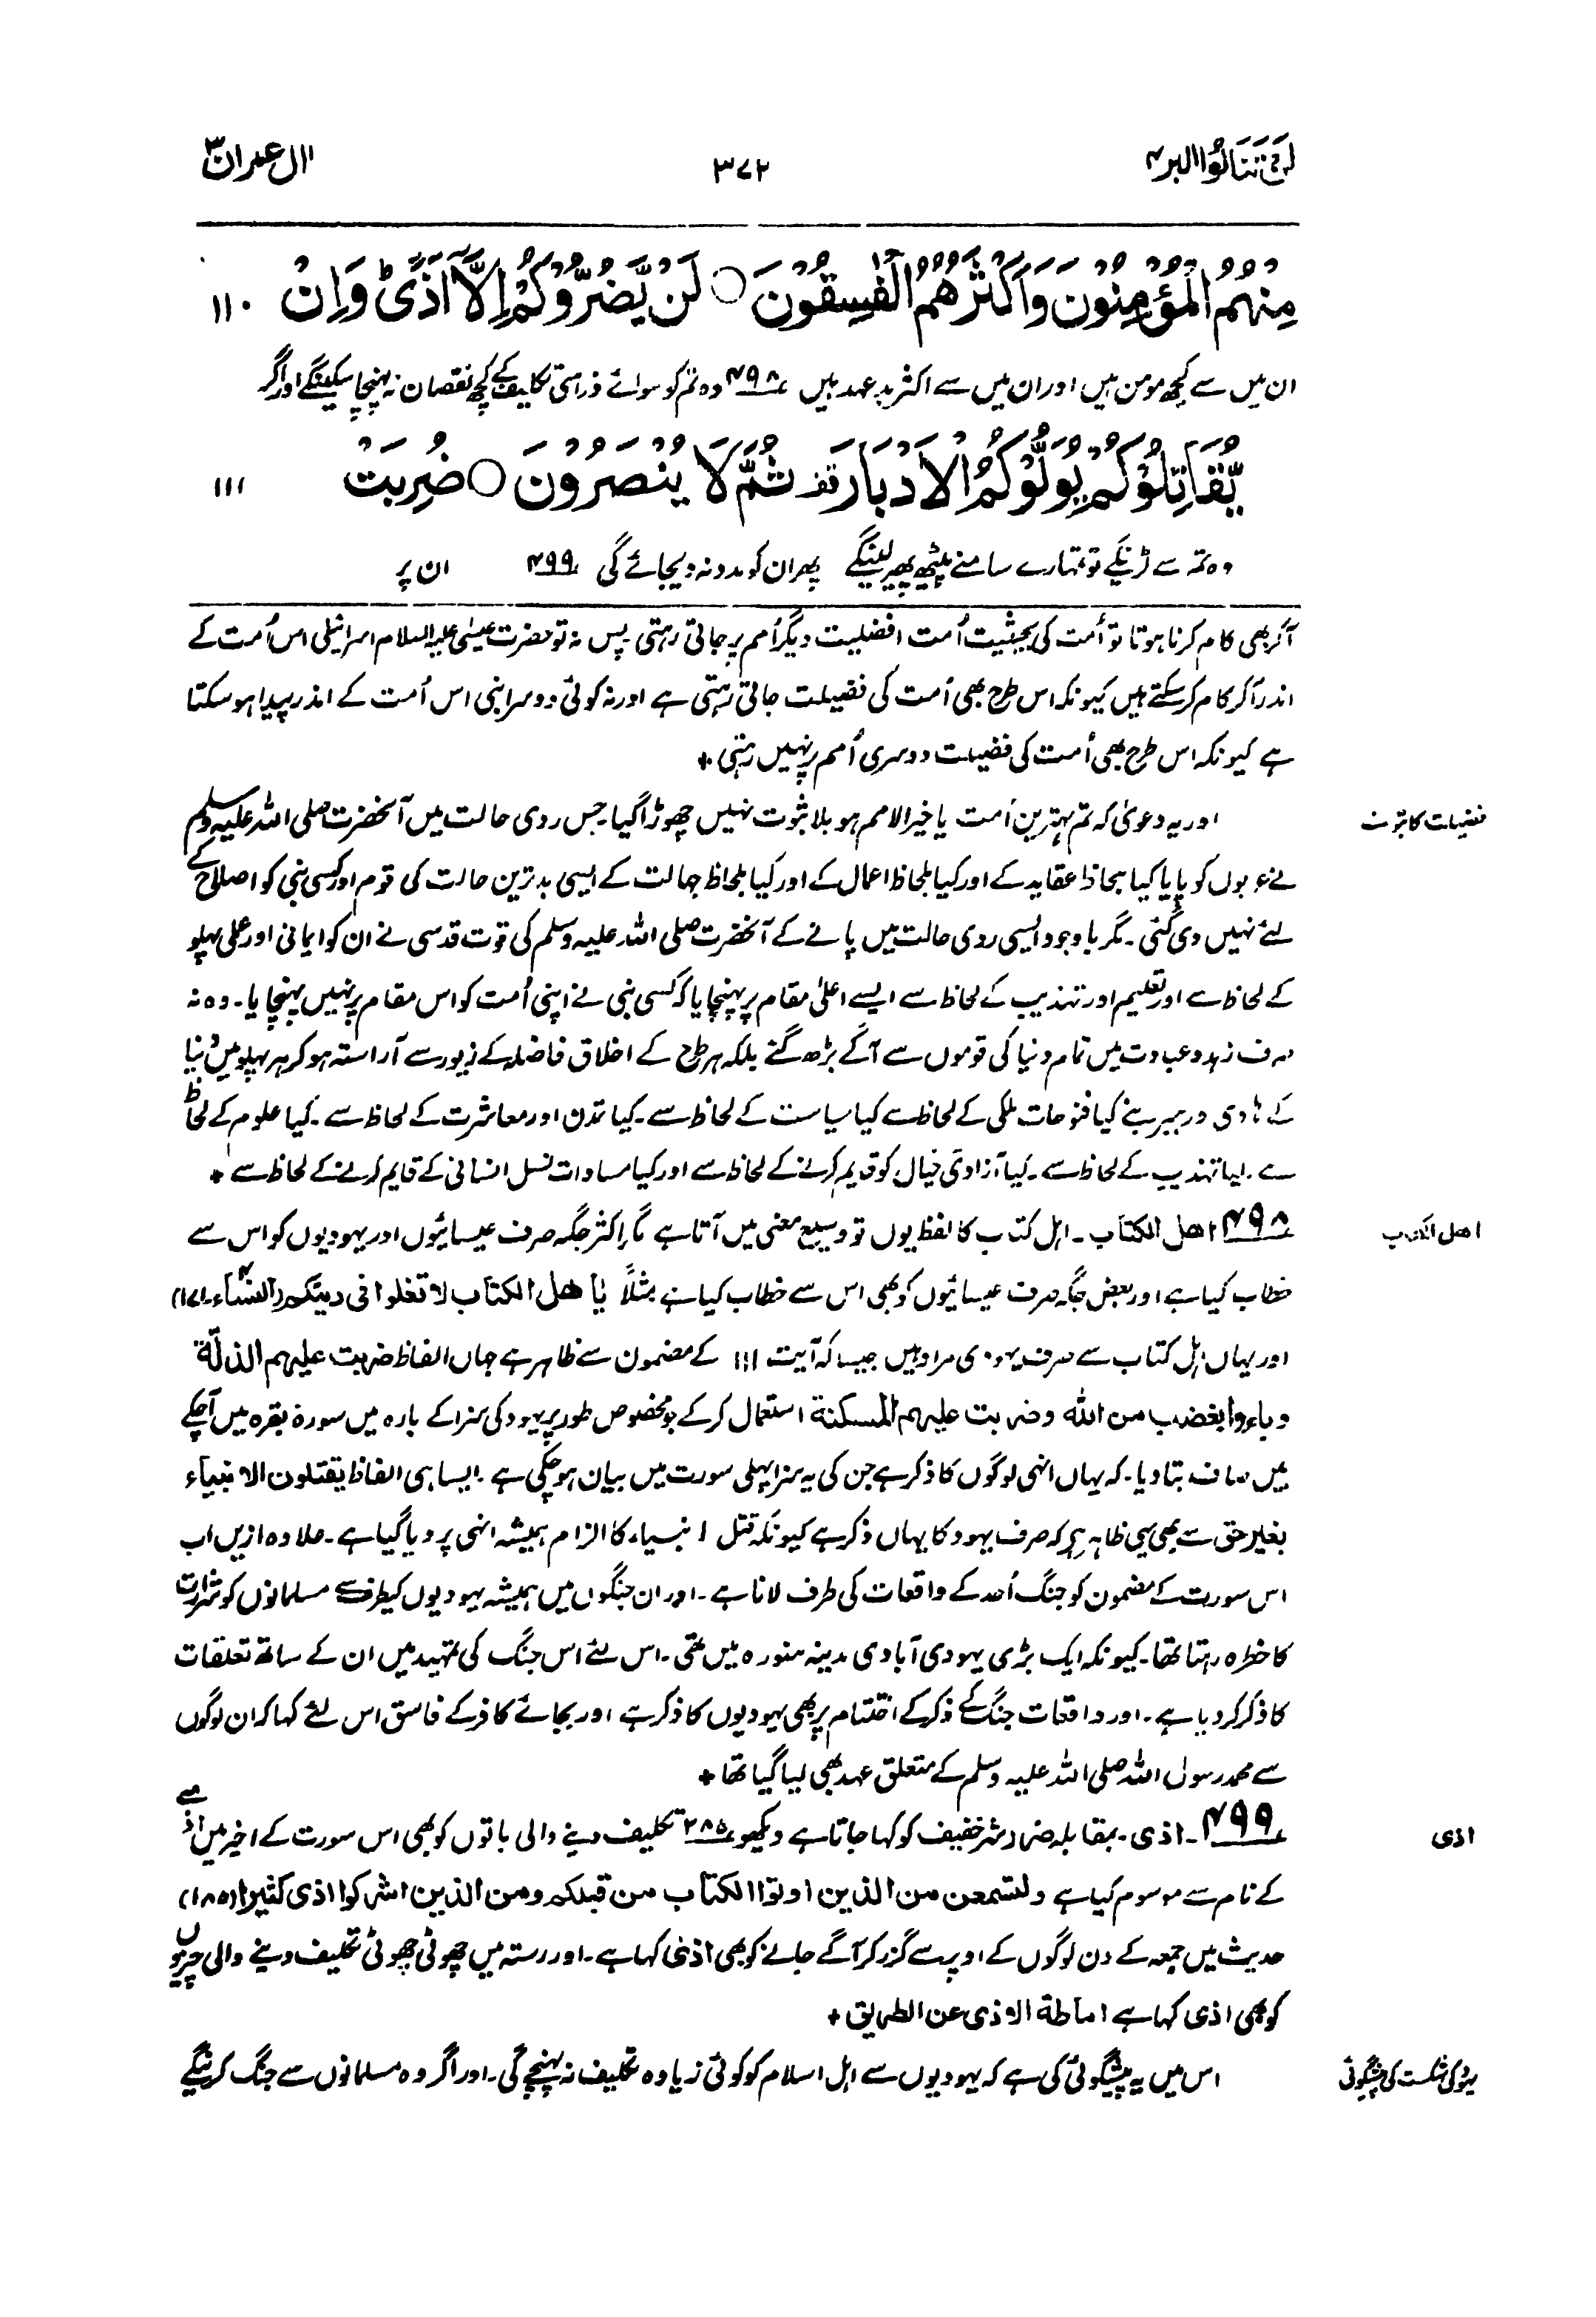 لن تنالوا البر ٤
٣٧٢
اٰل عمران ٣
مِنْهُمُ الْمُؤْمِنُوْنَ وَاَكْثَرُهُمُ الْفٰسِقُوْنَ ○ لَنْ يَّضُرُّوْكُمْ اِلَّآ اَذًى ؕ وَاِنْ ١١٠
ان میں سے کچھ مومن ہیں اور ان میں سے اکثر بدعہد ہیں ۴۹۸ وہ تم کو سوائے ذراسی تکلیف کے کچھ نقصان نہ پہنچا سکینگے اور اگر
يُّقَاتِلُوْكُمْ يُوَلُّوْكُمُ الْاَدْبَارَ قف ثُمَّ لَا يُنْصَرُوْنَ ○ ضُرِبَتْ ١١١
وہ تم سے لڑینگے تو تمہارے سامنے پیٹھ پھیر لینگے پھر ان کو مدد نہ دیجائے گی ۴۹۹ ان پر
آکر بھی کام کرنا ہوتا تو اُمت کی بحیثیت اُمت افضلیت دیگر اُمم پر جاتی رہتی پس نہ تو حضرت عیسیٰ علیہ السلام اسرائیلی اس اُمت کے
اندر آکر کام کر سکتے ہیں کیونکہ اس طرح بھی اُمت کی فضیلت جاتی رہتی ہے اور نہ کوئی دوسرا نبی اس اُمت کے اندر پیدا ہو سکتا
ہے کیونکہ اس طرح بھی اُمت کی فضیلت دوسری اُمم پر نہیں رہتی +
فضیلت کا ثبوت
اور یہ دعویٰ کہ تم بہترین اُمت یا خیر الامم ہو بلا ثبوت نہیں چھوڑا گیا۔ جس ردی حالت میں آنحضرت صلی اللہ علیہ وسلم
نے عربوں کو پایا کیا بلحاظ عقاید کے اور کیا بلحاظ اعمال کے اور کیا بلحاظ جہالت کے ایسی بدترین حالت کی قوم اور کسی نبی کو اصلاح کے
لئے نہیں دی گئی۔ مگر باوجود ایسی ردی حالت میں پانے کے آنحضرت صلی اللہ علیہ وسلم کی قوت قدسی نے ان کو ایمانی اور عملی پہلو
کے لحاظ سے اور تعلیم اور تہذیب کے لحاظ سے ایسے اعلیٰ مقام پر پہنچایا کہ کسی نبی نے اپنی اُمت کو اس مقام پر نہیں پہنچایا۔ وہ نہ
صرف زہد و عبادت میں تمام دنیا کی قوموں سے آگے بڑھ گئے بلکہ ہر طرح کے اخلاق فاضلہ کے زیور سے آراستہ ہو کر ہر پہلو میں دنیا
کے ہادی و رہبر بنے کیا فتوحات ملکی کے لحاظ سے کیا سیاست کے لحاظ سے۔ کیا تمدن اور معاشرت کے لحاظ سے۔ کیا علوم کے لحاظ
سے۔ کیا تہذیب کے لحاظ سے۔ کیا آزادی خیال کو قایم کرنے کے لحاظ سے اور کیا مساوات نسل انسانی کے قایم کرنے کے لحاظ سے +
اهل الکتاب
۴۹۸ اهل الکتاب۔ اہل کتاب کا لفظ یوں تو وسیع معنی میں آتا ہے مگر اکثر جگہ صرف عیسائیوں اور یہودیوں کو اس سے
خطاب کیا ہے اور بعض جگہ صرف عیسائیوں کو بھی اس سے خطاب کیا ہے مثلاً یٰاهل الکتاب لا تغلوا فی دینکم (النساء۴۔ ١٧١)
اور یہاں اہل کتاب سے صرف یہودی مراد ہیں جیسا کہ آیت ١١١ کے مضمون سے ظاہر ہے جہاں الفاظ ضربت علیهم الذلة
وباءوا بغضب من الله وضربت علیهم المسکنة استعمال کر کے جو مخصوص طور پر یہود کی سزا کے بارہ میں سورۃ بقرہ میں آچکے
ہیں صاف بتا دیا۔ کہ یہاں انہی لوگوں کا ذکر ہے جن کی یہ سزا پہلی سورت میں بیان ہو چکی ہے۔ ایسا ہی الفاظ یقتلون الانبیآء
بغیر حق سے بھی یہی ظاہر ہے کہ صرف یہود کا یہاں ذکر ہے کیونکہ قتل انبیاء کا الزام ہمیشہ انہی پر دیا گیا ہے۔ علاوہ ازیں اب
اس سورت کے مضمون کو جنگ اُحد کے واقعات کی طرف لانا ہے۔ اور ان جنگوں میں ہمیشہ یہودیوں کیطرف سے مسلمانوں کو شرارت
کا خطرہ رہتا تھا۔ کیونکہ ایک بڑی یہودی آبادی مدینہ منورہ میں تھی۔ اس لئے اس جنگ کی تمہید میں ان کے ساتھ تعلقات
کا ذکر کر دیا ہے۔ اور واقعات جنگ کے ذکر کے اختتام پر بھی یہودیوں کا ذکر ہے اور بجائے کافر کے فاسق اس لئے کہا کہ ان لوگوں
سے محمد رسول اللہ صلی اللہ علیہ وسلم کے متعلق عہد بھی لیا گیا تھا +
اذی
۴۹۹۔ اذی۔ بمقابلہ ضرر شر خفیف کو کہا جاتا ہے دیکھو ۲۸۵ تکلیف دینے والی باتوں کو بھی اس سورت کے اخیر میں اذیٰ
کے نام سے موسوم کیا ہے ولتسمعن من الذین اوتوا الکتاب من قبلکم ومن الذین اشرکوا اذی کثیرا (١٨٥)
حدیث میں جمعہ کے دن لوگوں کے اوپر سے گزر کر آگے جانے کو بھی اذیٰ کہا ہے۔ اور رستہ میں چھوٹی چھوٹی تکلیف دینے والی چیزوں
کو بھی اذی کہا ہے اماطة الاذی عن الطریق +
یہود کی شکست کی پیشگوئی
اس میں یہ پیشگوئی کی ہے کہ یہودیوں سے اہل اسلام کو کوئی زیادہ تکلیف نہ پہنچے گی۔ اور اگر وہ مسلمانوں سے جنگ کرینگے